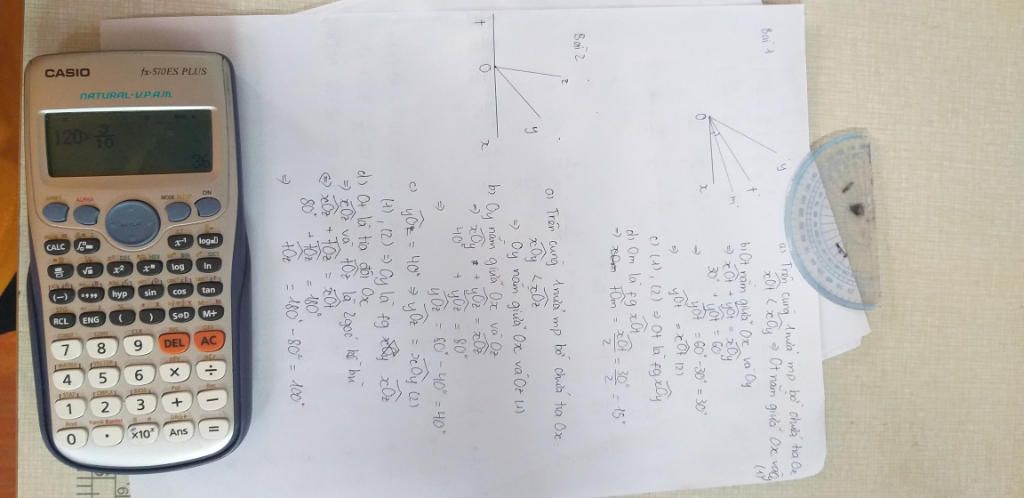 CASIO
fx-570ES PLUS
NATURAL-V.P.A.M.
120×3/10
36
SHIFT
ALPHA
MODE
ON
CALC
x⁻¹
log
ln
(−)
hyp
sin
cos
tan
RCL
ENG
(
)
S⇔D
M+
7
8
9
DEL
AC
4
5
6
×
÷
1
2
3
+
−
0
.
×10ˣ
Ans
=
Bài 1
O
y
t
m
x
a) Trên cùng 1 nửa mp bờ chứa tia Ox
xOt < xOy ⇒ Ot nằm giữa Ox và Oy (1)
b) Ot nằm giữa Ox và Oy
⇒ xOt + yOt = xOy
30° + yOt = 60°
⇒ yOt = 60° - 30° = 30°
⇒ yOt = xOt (2)
c) (1), (2) ⇒ Ot là tg xOy
d) Om là tg xOt
⇒ tOm = xOt/2 = 30°/2 = 15°
Bài 2
t
O
z
y
x
a) Trên cùng 1 nửa mp bờ chứa tia Ox
xOy < xOz
⇒ Oy nằm giữa Ox và Oz (1)
b) Oy nằm giữa Ox và Oz
⇒ xOy + yOz = xOz
40° + yOz = 80°
⇒ yOz = 80° - 40° = 40°
c) yOz = 40° ⇒ yOz = xOy (2)
(1), (2) ⇒ Oy là tg xOz
d) Ot là tia đối Ox
⇒ xOz và tOz là 2 góc kề bù
⇒ xOz + tOz = xOt
80° + tOz = 180°
⇒ tOz = 180° - 80° = 100°